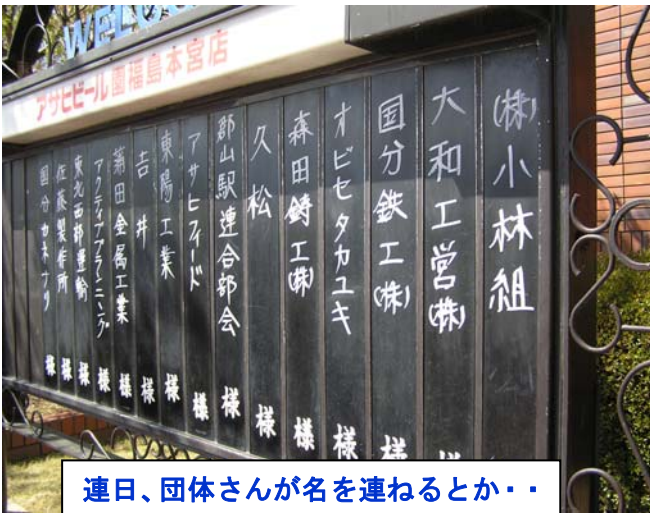 WELCO
アサヒビール園福島本宮店
(株)小林組
大和工営(株) 様
国分鉄工(株) 様
オビセタカユキ 様
森田鋳工(株) 様
久松 様
郡山駅連合部会 様
アサヒフィード 様
東陽工業 様
吉井 様
蒲田金属工業 様
アクティブプラーニング 様
東北西部運輸 様
佐藤製作所 様
国分カネナリ 様
連日、団体さんが名を連ねるとか・・